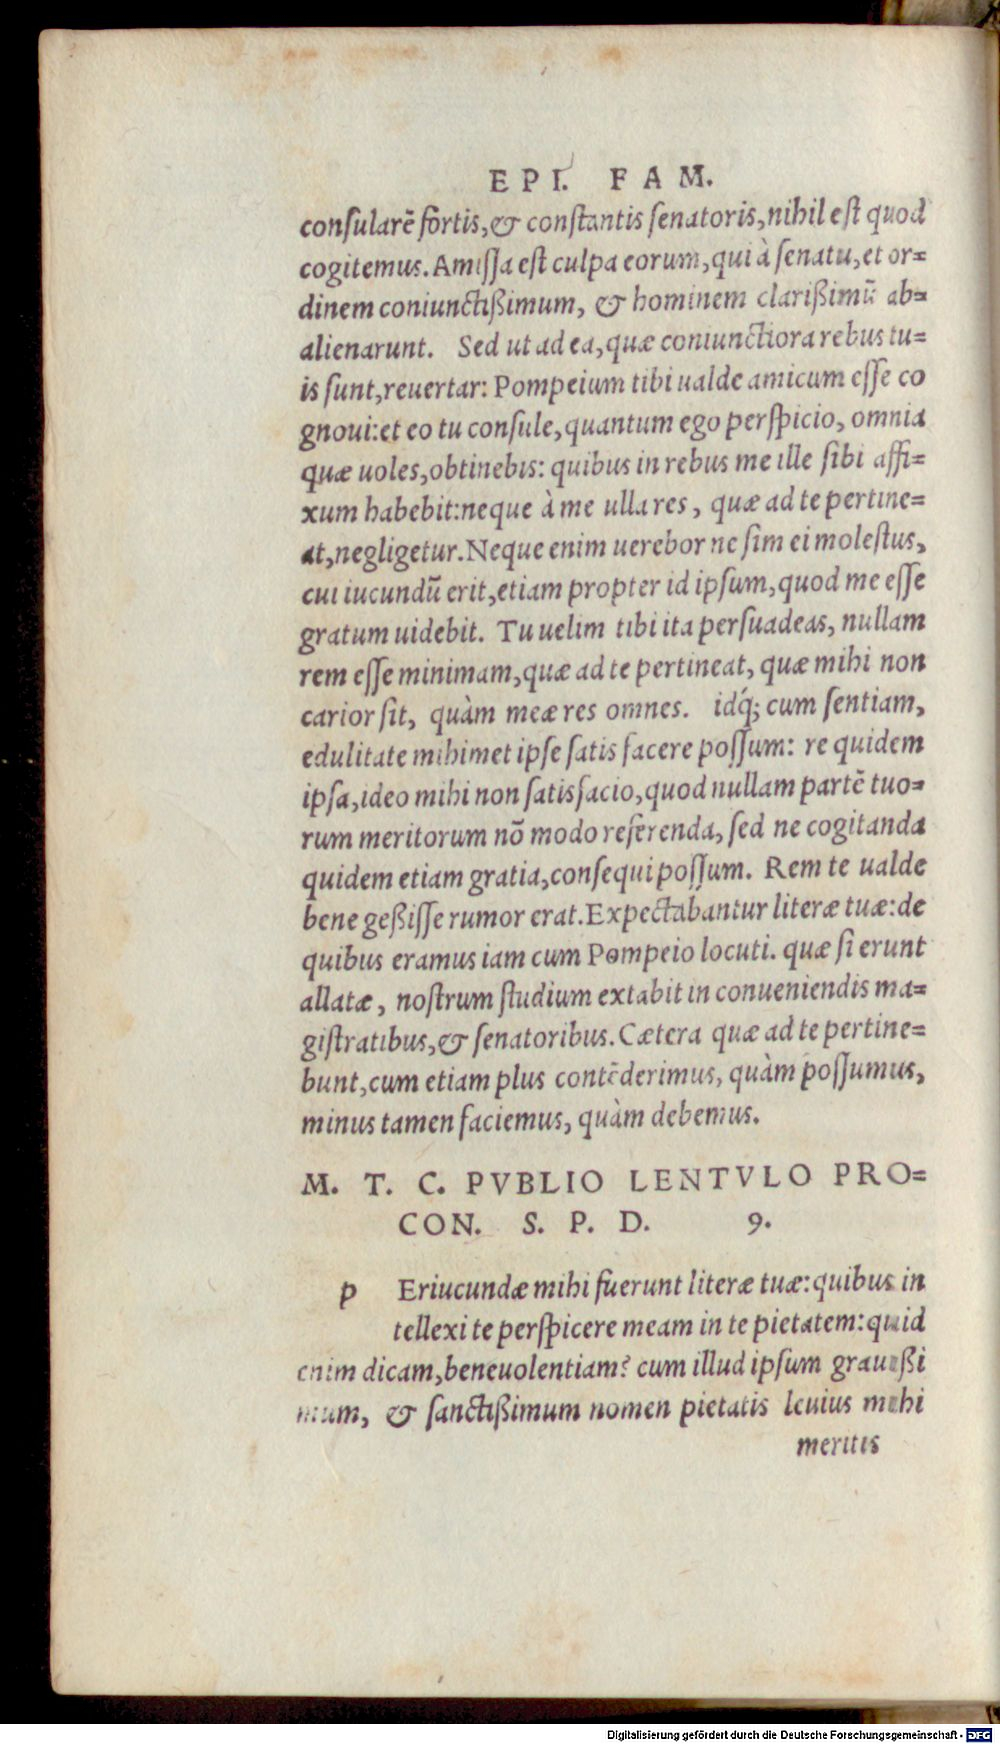 EPI. FAM.
consularē fortis, & constantis senatoris, nihil est quod
cogitemus. Amissa est culpa eorum, qui à senatu, et or=
dinem coniunctißimum, & hominem clarißimū ab=
alienarunt. Sed ut ad ea, quæ coniunctiora rebus tu=
is sunt, reuertar: Pompeium tibi ualde amicum esse co
gnoui: et eo tu consule, quantum ego perspicio, omnia
quæ uoles, obtinebis: quibus in rebus me ille sibi affi=
xum habebit: neque à me ulla res, quæ ad te pertine=
at, negligetur. Neque enim uerebor ne sim ei molestus,
cui iucundū erit, etiam propter id ipsum, quod me esse
gratum uidebit. Tu uelim tibi ita persuadeas, nullam
rem esse minimam, quæ ad te pertineat, quæ mihi non
carior sit, quàm meæ res omnes. idq́; cum sentiam,
edulitate mihimet ipse satis facere possum: re quidem
ipsa, ideo mihi non satisfacio, quod nullam partē tuo=
rum meritorum nō modo referenda, sed ne cogitanda
quidem etiam gratia, consequi possum. Rem te ualde
bene geßisse rumor erat. Expectabantur literæ tuæ: de
quibus eramus iam cum Pompeio locuti. quæ si erunt
allatæ, nostrum studium extabit in conueniendis ma=
gistratibus, & senatoribus. Cætera quæ ad te pertine=
bunt, cum etiam plus contēderimus, quàm possumus,
minus tamen faciemus, quàm debemus.
M. T. C. PVBLIO LENTVLO PRO=
CON. S. P. D. 9.
p Eriucundæ mihi fuerunt literæ tuæ: quibus in
tellexi te perspicere meam in te pietatem: quid
enim dicam, beneuolentiam? cum illud ipsum grauißi
mum, & sanctißimum nomen pietatis leuius mihi
meritis
Digitalisierung gefördert durch die Deutsche Forschungsgemeinschaft - DFG